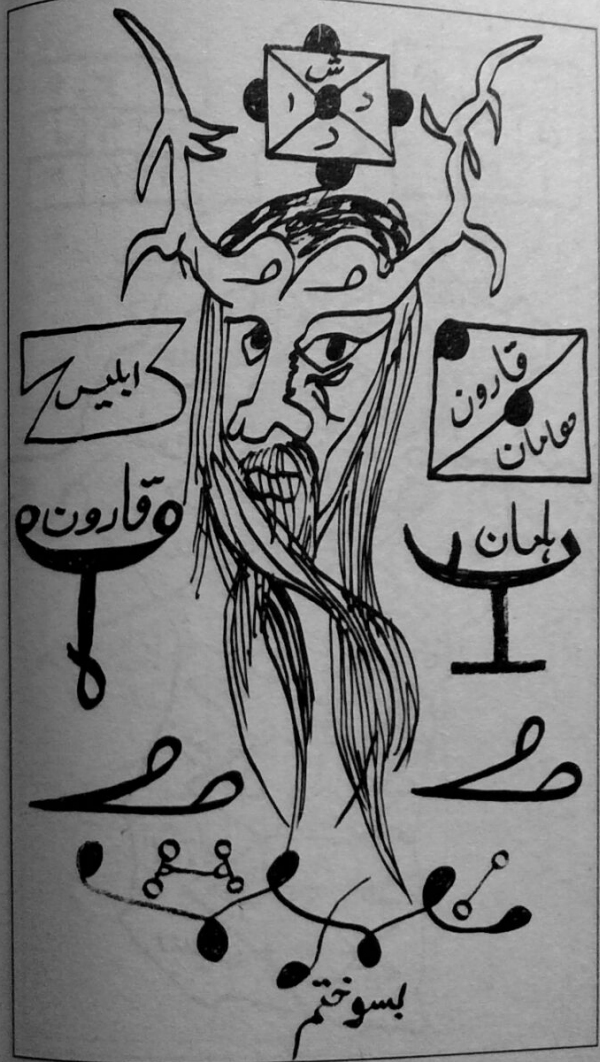 ش
ا د
ر
ابلیس
قارون
هامان
قارون
ہامان
بسوختم